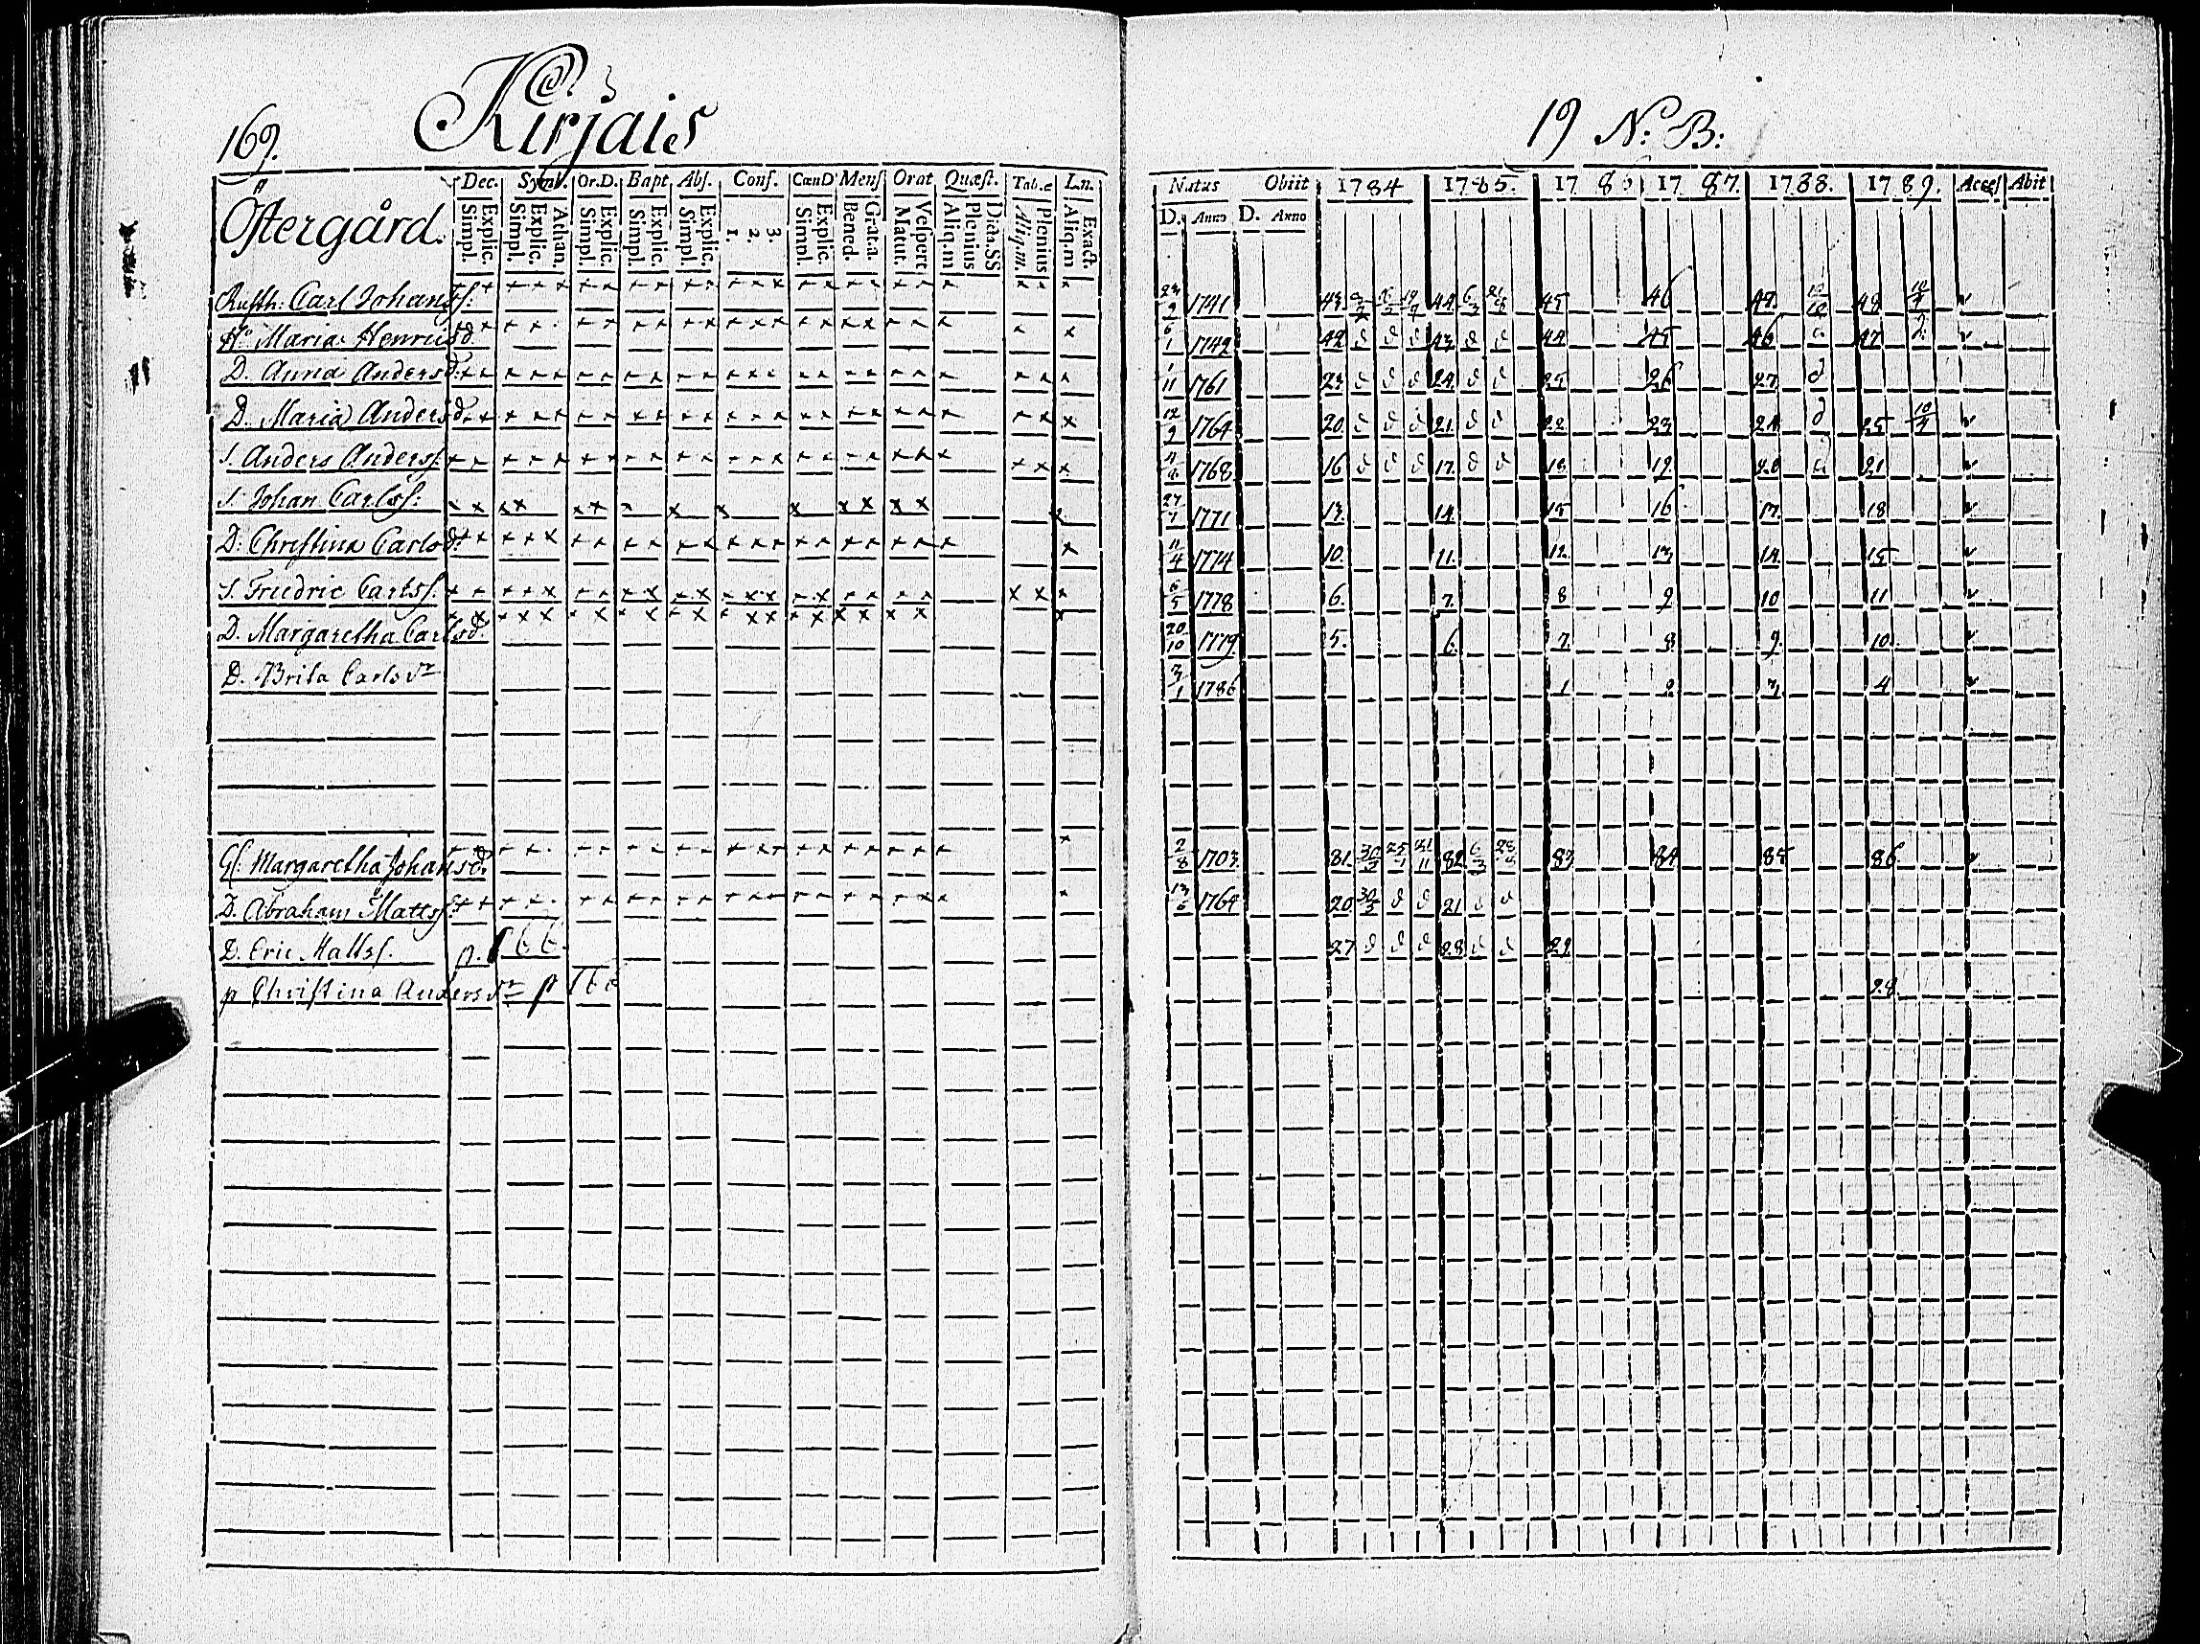 169. Kirjais
Östergård.
Dec. Symb. Or.D. Bapt Abs. Conf. CœnD Mens Orat Quæst. Tab.œ Ln.
Simpl. Explic. Simpl. Explic. Athan. Simpl. Explic. Simpl. Explic. Simpl. Explic. 1. 2. 3. Simpl. Explic. Bened. Grat.a. Matut. Vespert Aliq.m Plenius Dicta.SS Aliq.m. Plenius Aliq.m Exact.
Rusth: Carl Johanss:
Hu Maria Henricsd.
D. Anna Andersd:
D. Maria Andersd.
S. Anders Anderss.
S. Johan Carlss:
D. Christina Carlsd:
S. Friedric Carlss.
D. Margaretha Carlsd.
D. Brita Carlsdr
Gl. Margaretha Johansd.
D. Abraham Mattss.
D. Eric Mattss. p. 166.
p Christina Andersdr p
19 N: B:
Natus Obiit 1784 1785. 1786 1787. 1788. 1789. Access Abit
D. Anno D. Anno
23/9 1741 43. 44. 6/3 45 46 47. 48.
6/1 1742 42 d d d 43. d d 44 45 46 47
1/11 1761 23 d d d 24. d d 25 26 27 d
12/9 1764 20. d d d 21. d d 22 23 24 d 25
1768 16 d d d 17. d d 18 19. 20 21
27/7 1771 13. 14. 15 16 17. 18
11/4 1774 10. 11. 12. 13 14 15
6/5 1778 6. 7. 8 9 10 11
20/10 1779 5. 6. 7. 8 9. 10.
3/1 1786 1 2 3. 4
2/8 1703. 81. 82 6/3 83 84 85 86
1764 20. d d 21. d d
27 d d d 28 d d 29.
28